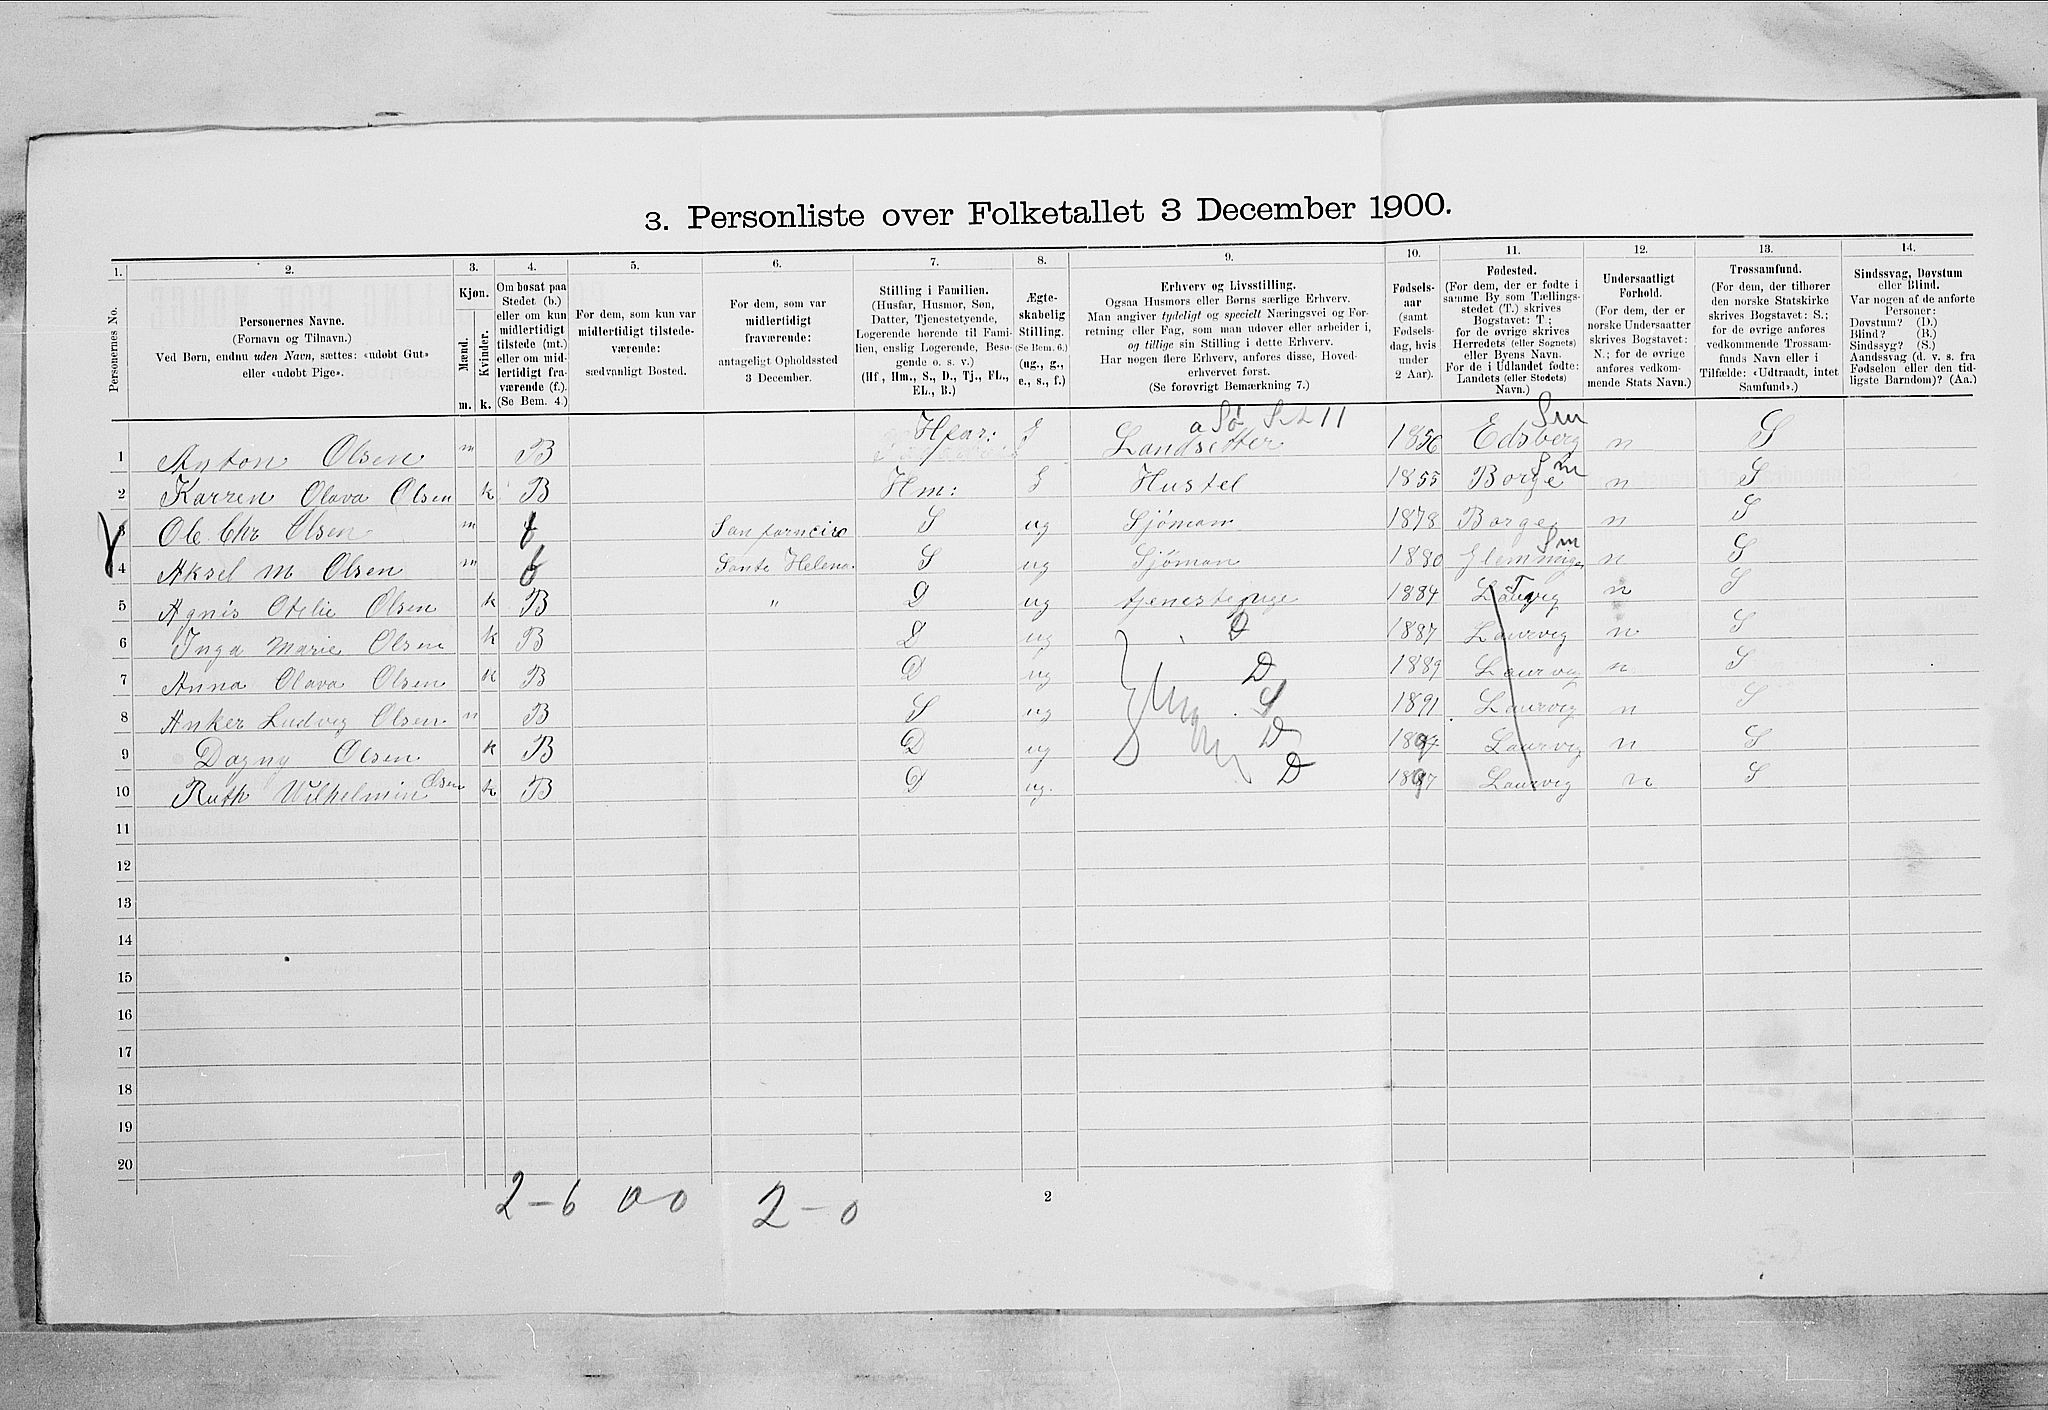 3. Personliste over Folketallet 3 December 1900.
1. 2. 3. 4. 5. 6. 7. 8. 9. 10. 11. 12. 13. 14.
Personernes No.
Personernes Navne.
(Fornavn og Tilnavn.)
Ved Børn, endnu uden Navn, sættes: «udøbt Gut»
eller «udøbt Pige».
Kjøn.
Mænd.
Kvinder.
m. k.
Om bosat paa
Stedet (b.)
eller om kun
midlertidigt
tilstede (mt.)
eller om mid-
lertidigt fra-
værende (f.).
(Se Bem. 4.)
For dem, som kun var
midlertidigt tilstede-
værende:
sædvanligt Bosted.
For dem, som var
midlertidigt
fraværende:
antageligt Opholdssted
3 December.
Stilling i Familien.
(Husfar, Husmor, Søn,
Datter, Tjenestetyende,
Logerende hørende til Fami-
lien, enslig Logerende, Besø-
gende o. s. v.)
(Hf, Hm., S., D., Tj., FL.,
EL., B.)
Ægte-
skabelig
Stilling.
(Se Bem. 6.)
(ug., g.,
e., s., f.)
Erhverv og Livsstilling.
Ogsaa Husmors eller Børns særlige Erhverv.
Man angiver tydeligt og specielt Næringsvei og For-
retning eller Fag, som man udøver eller arbeider i,
og tillige sin Stilling i dette Erhverv.
Har nogen flere Erhverv, anføres disse, Hoved-
erhvervet først.
(Se forøvrigt Bemærkning 7.)
Fødsels-
aar
(samt
Fødsels-
dag, hvis
under
2 Aar).
Fødested.
(For dem, der er fødte i
samme By som Tællings-
stedet (T.) skrives
Bogstavet: T;
for de øvrige skrives
Herredets (eller Sognets)
eller Byens Navn.
For de i Udlandet fødte:
Landets (eller Stedets)
Navn.)
Undersaatligt
Forhold.
(For dem, der er
norske Undersaatter
skrives Bogstavet:
N.; for de øvrige
anføres vedkom-
mende Stats Navn.)
Trossamfund.
(For dem, der tilhører
den norske Statskirke
skrives Bogstavet: S.;
for de øvrige anføres
vedkommende Trossam-
funds Navn eller i
Tilfælde: «Udtraadt, intet
Samfund».)
Sindssvag, Døvstum
eller Blind.
Var nogen af de anførte
Personer:
Døvstum? (D.)
Blind? (B.)
Sindssyg? (S.)
Aandssvag (d. v. s. fra
Fødselen eller den tid-
ligste Barndom)? (Aa.)
1 Anton Olsen m B Hfar: g Landsetter 1856 Edsberg Sm n S
2 Karren Olava Olsen k B Hm: g Hustel 1855 Borge Sm n S
3 Ole Chr Olsen m f San forneiro S ug Sjöman 1878 Borge n S
4 Aksel M Olsen m f Sante Helena S ug Sjöman 1880 Glemminge Sm n S
5 Agnis Otelie Olsen k B " D ug tjenestepige 1884 Laurvig T n S
6 Inga Marie Olsen k B D ug D 1887 Laurvig n S
7 Anna Olava Olsen k B D ug D 1889 Laurvig n S
8 Anker Ludvig Olsen m B S ug S 1891 Laurvig n S
9 Dagny Olsen k B D ug D 1894 Laurvig n S
10 Ruth Wilhelmin Olsen k B D ug. D 1897 Laurvig n S
11
12
13
14
15
16
17
18
19
20
2-6 0 0 2-0
2